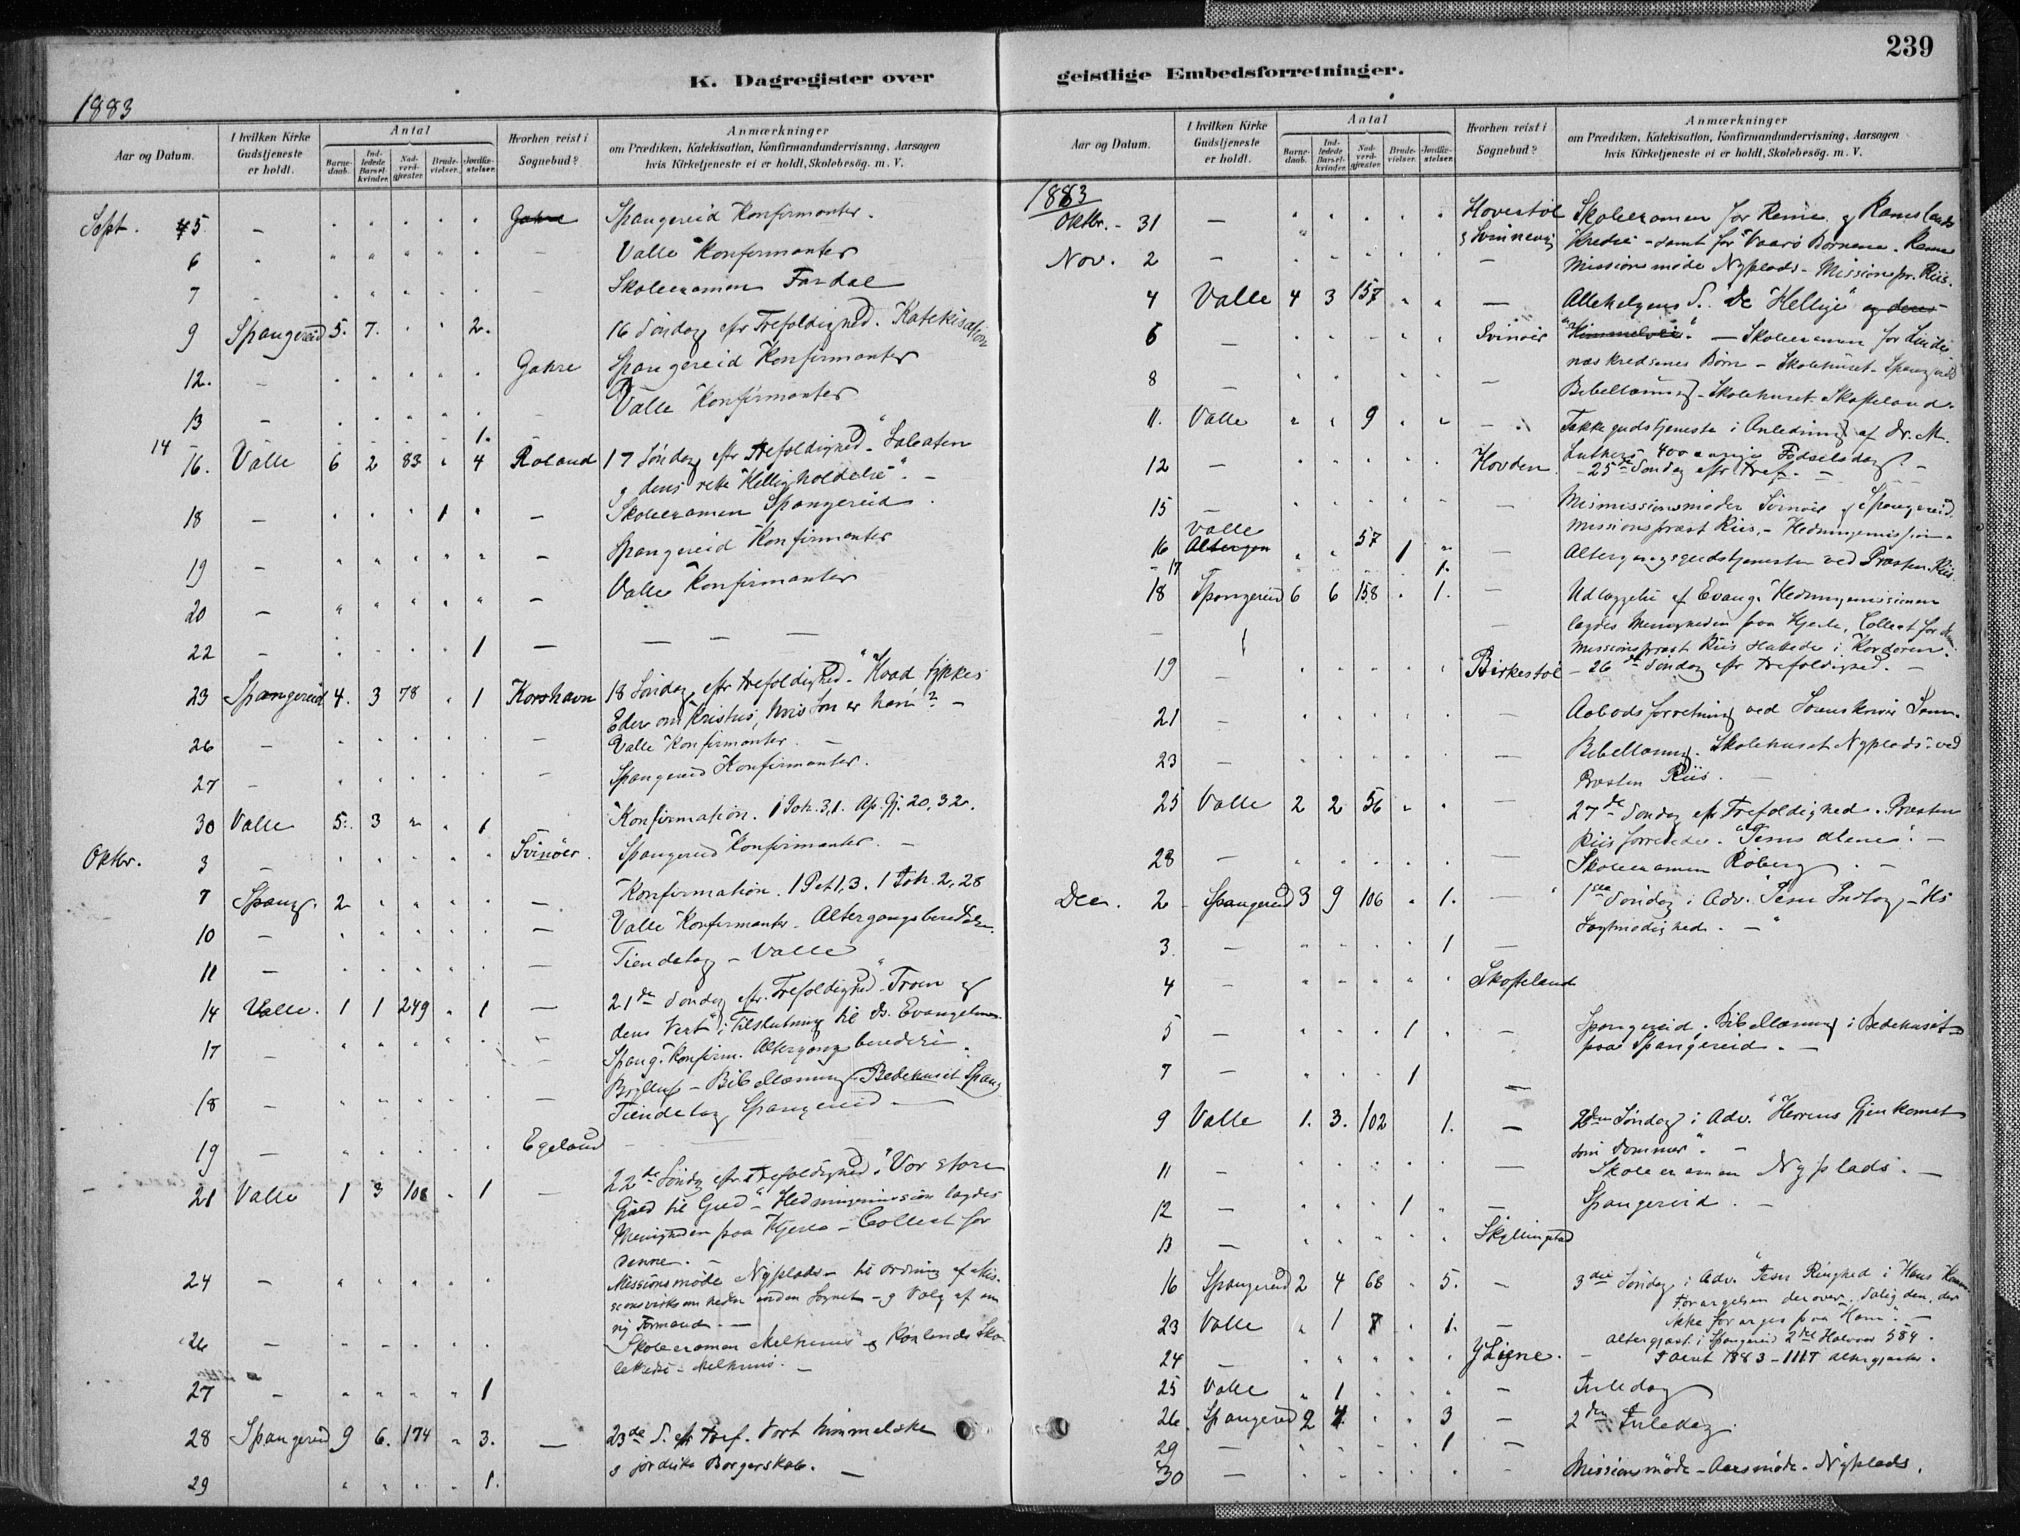 239
K. Dagregister over geistlige Embedsforretninger.
1883
Aar og Datum. I hvilken Kirke Gudstjeneste er holdt. Antal Barnedaab. Indledede Barselkvinder. Nadverdgjæster. Brudevielser. Jordfæstelser. Hvorhen reist i Sognebud? Anmærkninger om Prædiken, Katekisation, Konfirmandundervisning, Aarsagen hvis Kirketjeneste ei er holdt, Skolebesøg. m. V.
Sept. 5 – Spangereid Konfirmanter.
6 – Valle Konfirmanter
7 Skoleexamen Fardal
9 Spangereid 5. 7. 2. 16 Søndag eftr Trefoldighed. Katekisation
12. – Gahre Spangereid Konfirmanter
13 – Valle Konfirmanter
14 1.
16. Valle 6 2 83 4 Roland 17 Søndag eftr Trefoldighed "Sabaten
og dens rette Helligholdelse". –
18 – 1 – Skoleexamen Spangereid.
19 – – Spangereid Konfirmanter
20 – – Valle Konfirmanter
22 – 1 – – – –
23 Spangereid 4. 3 78 1 Korshavn 18 Søndag eftr Trefoldighed. "Hvad tykkes
Eder om Kristus, hvis Søn er han"? –
26 – – Valle Konfirmanter. –
27 – – Spangereid Konfirmanter.
30 Valle 5. 3 1 Konfirmation. 1 Joh. 3,1. Ap. Gj. 20, 32.
Oktbr. 3 – Svinöer. Spangereid Konfirmanter. –
7 Spang. 2 – Konfirmation. 1 Pet 1, 3. 1 Joh. 2, 28
10 – – Valle Konfirmanter. Altergangsberedelse.
11 – – Tiendetag – Valle
14 Valle. 1 1 249 1 – 21de Søndag eftr. Trefoldighed "Troen og
dens Vext" i Tilslutning til Ds. Evangelium
17 – – Spang. Konfirm. Altergangsberedelse.
Bryllup – Bibellæsning Bedehuset Spang
18 – – Tiendetag Spangereid –
19 – Egeland
21 Valle 1 3 108 1 – 22de Søndag eftr. Trefoldighed. "Vor store
Gjæld til Gud" – Hedningemission lagdes
Menigheden paa Hjerte – Collect for
denne. –
24 – Missionsmöde Nyplads – til ordning af Mis-
sionsvirksomheden inden Sognet – og Valg af en
ny Formand. –
26 – Skoleexamen
27 – 1
28 Spangereid 9 6. 174 3. – 23de S. eftr Tref. Vort himmelske
& jordiske Borgerskab. –
29 1.
Aar og Datum. I hvilken Kirke Gudstjeneste er holdt. Antal Barnedaab. Indledede Barselkvinder. Nadverdgjæster. Brudevielser. Jordfæstelser. Hvorhen reist i Sognebud? Anmærkninger om Prædiken, Katekisation, Konfirmandundervisning, Aarsagen hvis Kirketjeneste ei er holdt, Skolebesøg. m. V.
1883
Oktbr. – 31 – Hovestöl Skoleexamen for Ramslands
& Svinnevig Kredse – samt for Vaarö Børnene.
Nov. 2 – – Missionsmöde Nyplads – Missionspr. Riis.
4 Valle 4 3 157 – Allehelgens S. De "Hellige" og deres
6 – Svinöer "Himmelen". – Skoleexamen for Lindes-
næskredsenes Børn – Skolehuset. Spangereid
8 – – Bibellæsning – Skolehuset Skofteland.
11. Valle 9 – Takkegudstjeneste i Anledning af Dr. M.
Luthers 400 aarige Födselsdag –
12 – Hovden – 25de Søndag eftr Tref. –
15 – – Missionsmöder Svinöer & Spangereid
Missionsprest Riis. – Hedningemission.
16 Valle 57 1 – Altergangsgudstjeneste ved Præsten Riis
– 17 1.
18 Spangereid 6 6 158 1. – Udlæggelse af Evang. Hedningemissionen
lagdes Menigheden paa Hjerte, Collect for denne
Missionsprest Riis
19 – Birkestöl – 26de Søndag eftr Trefoldighed. –
21 – – Aabodsforretning ved Sorenskriver
23 – – Bibellæsning. Skolehuset Nyplads: ved
Præsten Riis. –
25 Valle 2 2 56 – 27de Søndag eft Trefoldighed. Præsten
Riis forrettede. "Jesus alene". –
28 – – Skoleexamen Roberg –
Dec. 2 Spangereid 3 9 106 1. – 1ste Søndag i Adv. "Jesu Indtog, – Hs
Sagtmodighed. –"
3. – 1 –
4 – Skofteland
5 – 1 – Spangereid. Bibellæsning i Bedehuset
paa Spangereid. –
7 – 1 –
9 Valle 1. 3. 102 1. – 2den Søndag i Adv. "Herrens Gjenkomst
som Dommer". –
11 – – Skoleexamen Nyplads. –
12 – 1 – Spangereid. –
13 – Skyllingstad
16 Spangereid 2 4 68 5. – 3die Søndag i Adv. "Jesu Ringhed i Hans
Forargelsen derover. Salig den, der
ikke forarges paa Ham". –
23 Valle 1 7 1. – altergjæst. i Spangereid 2det Halvaar 584.
24 – – Samt 1883 – 1117 altergjæster.
25 Valle 1 – Juledag
26. Spangereid 2 3 – 2den Juledag
29 – 1 –
30 – – Missionsmöde – Aarsmöde – Nyplads.